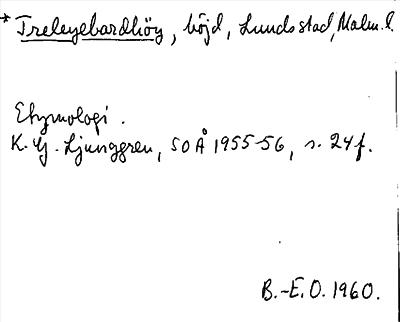 * Treleyebardhöy, höjd, Lunds stad, Malm. l.
Etymologi.
K. G. Ljunggren, SOÅ 1955-56, s. 24 f.
B.-E. O. 1960.